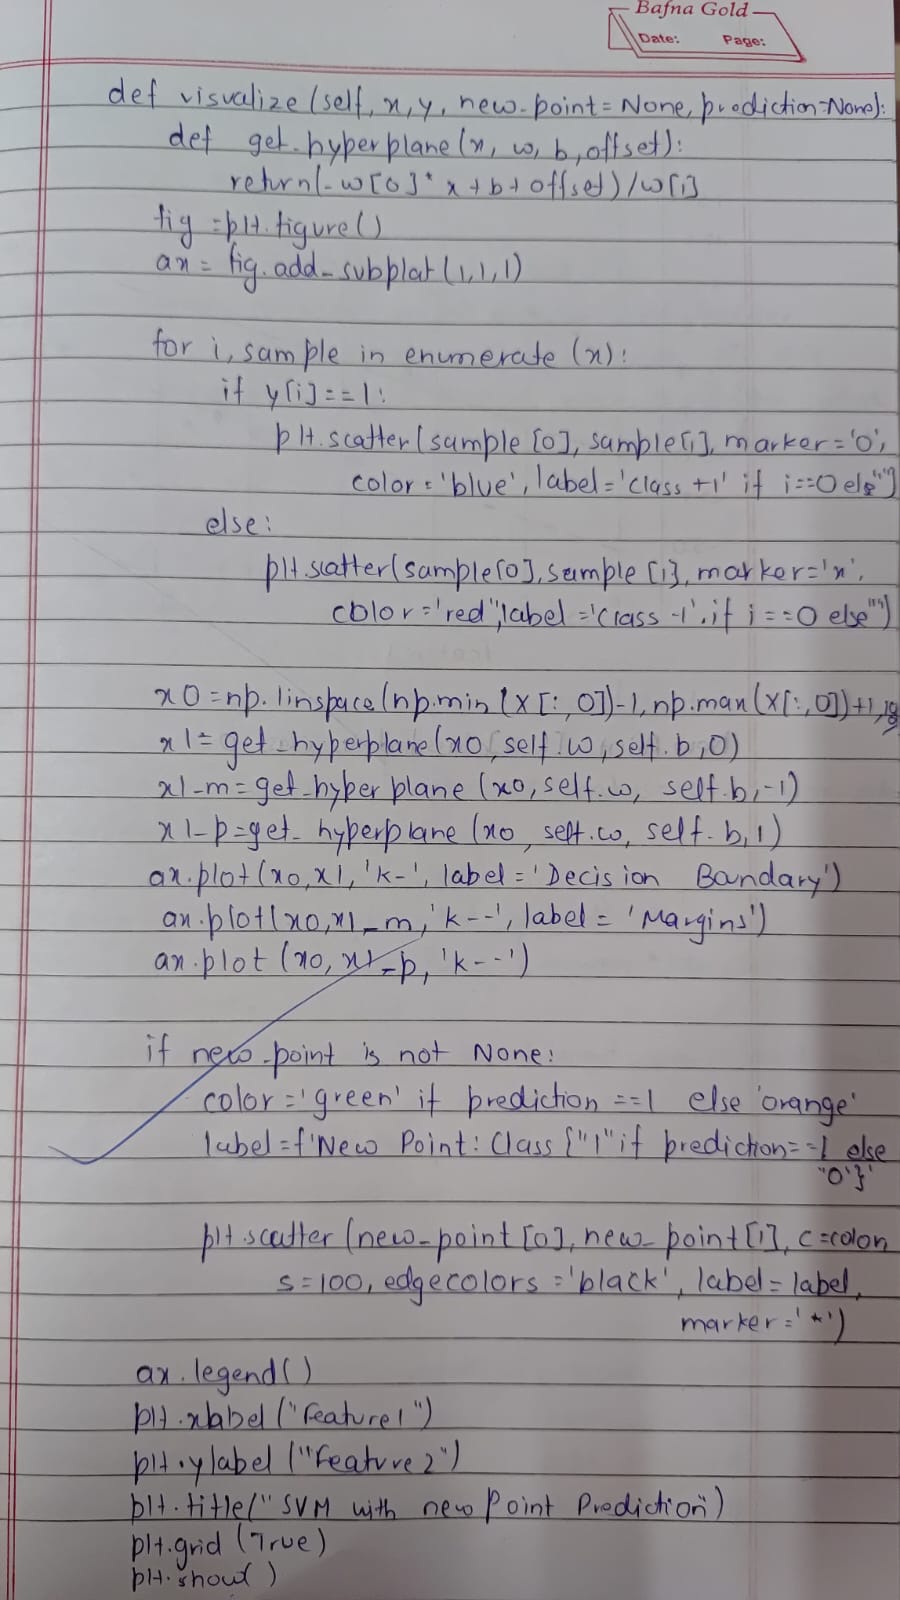 Bafna Gold
Date: Page:
def visualize (self, x, y, new-point = None, prediction=None):
def get-hyperplane (x, w, b, offset):
return (-w[0]* x + b + offset) / w[1]
fig = plt.figure()
ax = fig.add-subplat (1,1,1)
for i, sample in enumerate (x):
if y[i]==1:
plt.scatter (sample [0], sample[1], marker = 'o',
color = 'blue', label = 'class +1' if i==0 else "")
else:
plt.scatter (sample[0], sample [1], marker = 'x',
color = 'red", label = 'class -1'. if i==0 else "")
x0 = np.linspace (np.min (X [:, 0])-1, np.max (X[:,0])+1,
x1 = get-hyperplane (x0, self.w, self.b, 0)
x1-m = get-hyperplane (x0, self.w, self.b, -1)
x1-p = get-hyperplane (x0, self.w, self.b, 1)
ax.plot (x0, x1, 'k-', label = 'Decision Boundary')
ax.plot (x0, x1_m, 'k--', label = 'Margins')
ax.plot (x0, x1_p, 'k--')
if new-point is not None:
color = 'green' if prediction ==1 else 'orange'
label = f'New Point: Class {"1" if prediction==1 else
"0"}'
plt.scatter (new_point [0], new_point [1], c = color,
s=100, edgecolors = 'black', label = label,
marker = '*')
ax.legend()
plt.xlabel ("Feature1")
plt.ylabel ("Feature 2")
plt.title (" SVM with new Point Prediction")
plt.grid (True)
plt.show()